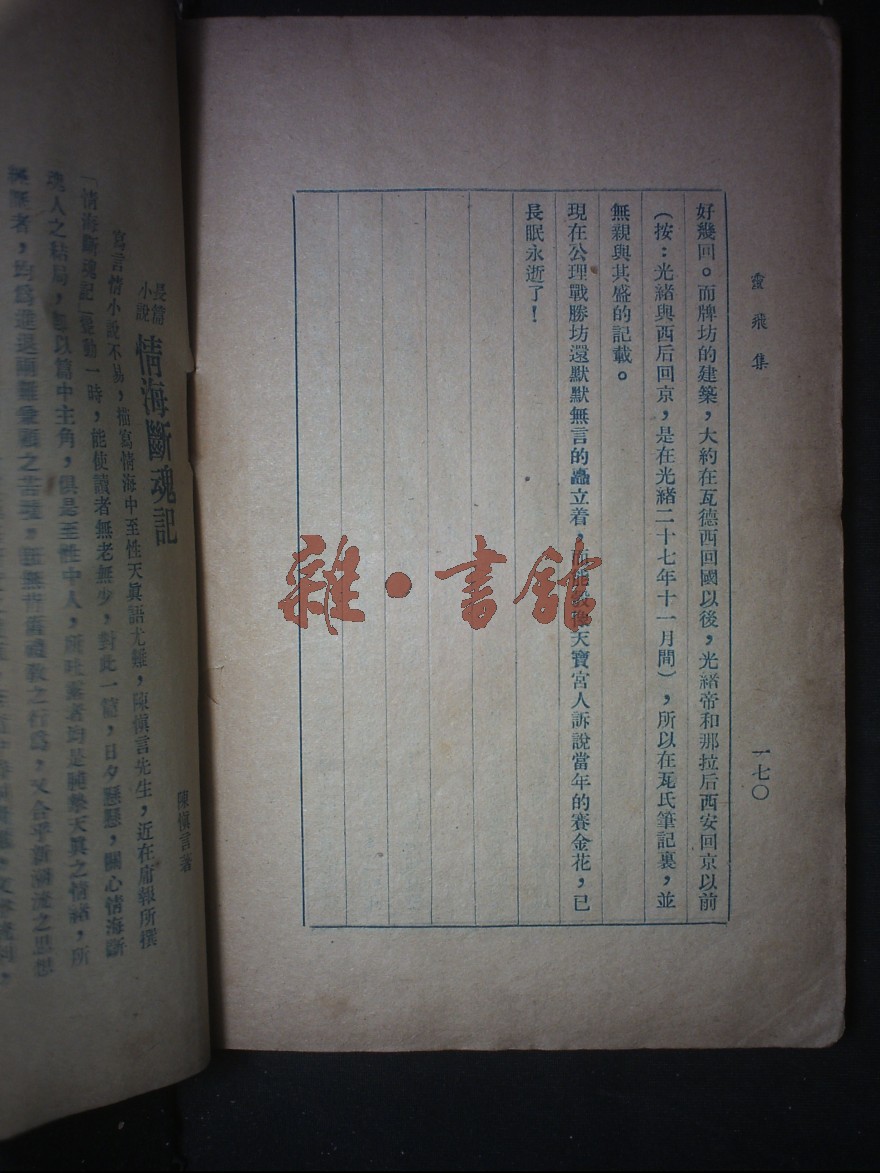 靈飛集
一七〇
好幾回。而牌坊的建築，大約在瓦德西回國以後，光緒帝和那拉后西安回京以前
（按：光緒與西后回京，是在光緒二十七年十一月間），所以在瓦氏筆記裏，並
無親與其盛的記載。
現在公理戰勝坊還默默無言的矗立着，而能夠像天寶宮人訴說當年的賽金花，已
長眠永逝了！
雜·書舘
長篇
小說
情海斷魂記
陳慎言著
寫言情小說不易，描寫情海中至性天眞語尤難，陳慎言先生，近在庸報所撰
「情海斷魂記」轟動一時，能使讀者無老無少，對此一篇，日夕懸懸，關心情海斷
魂人之結局，無以篇中主角，俱是至性中人，所吐露者均是純摯天眞之情緒，所
者，均爲進退兩難之苦，無背舊禮敎之行爲，又合乎新潮流之思想